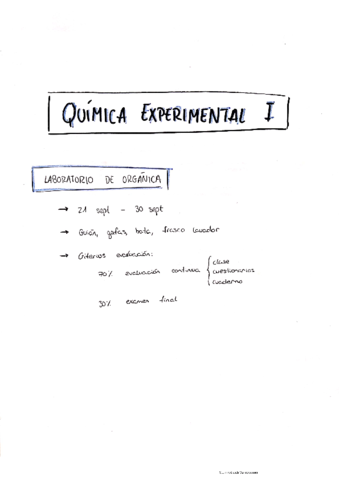 QUÍMICA EXPERIMENTAL I
LABORATORIO DE ORGÁNICA
→ 21 sept - 30 sept
→ Guión, gafas, bata, frasco lavador
→ Criterios evaluación:
70% evaluación continua { clase
cuestionarios
cuaderno
30% examen final